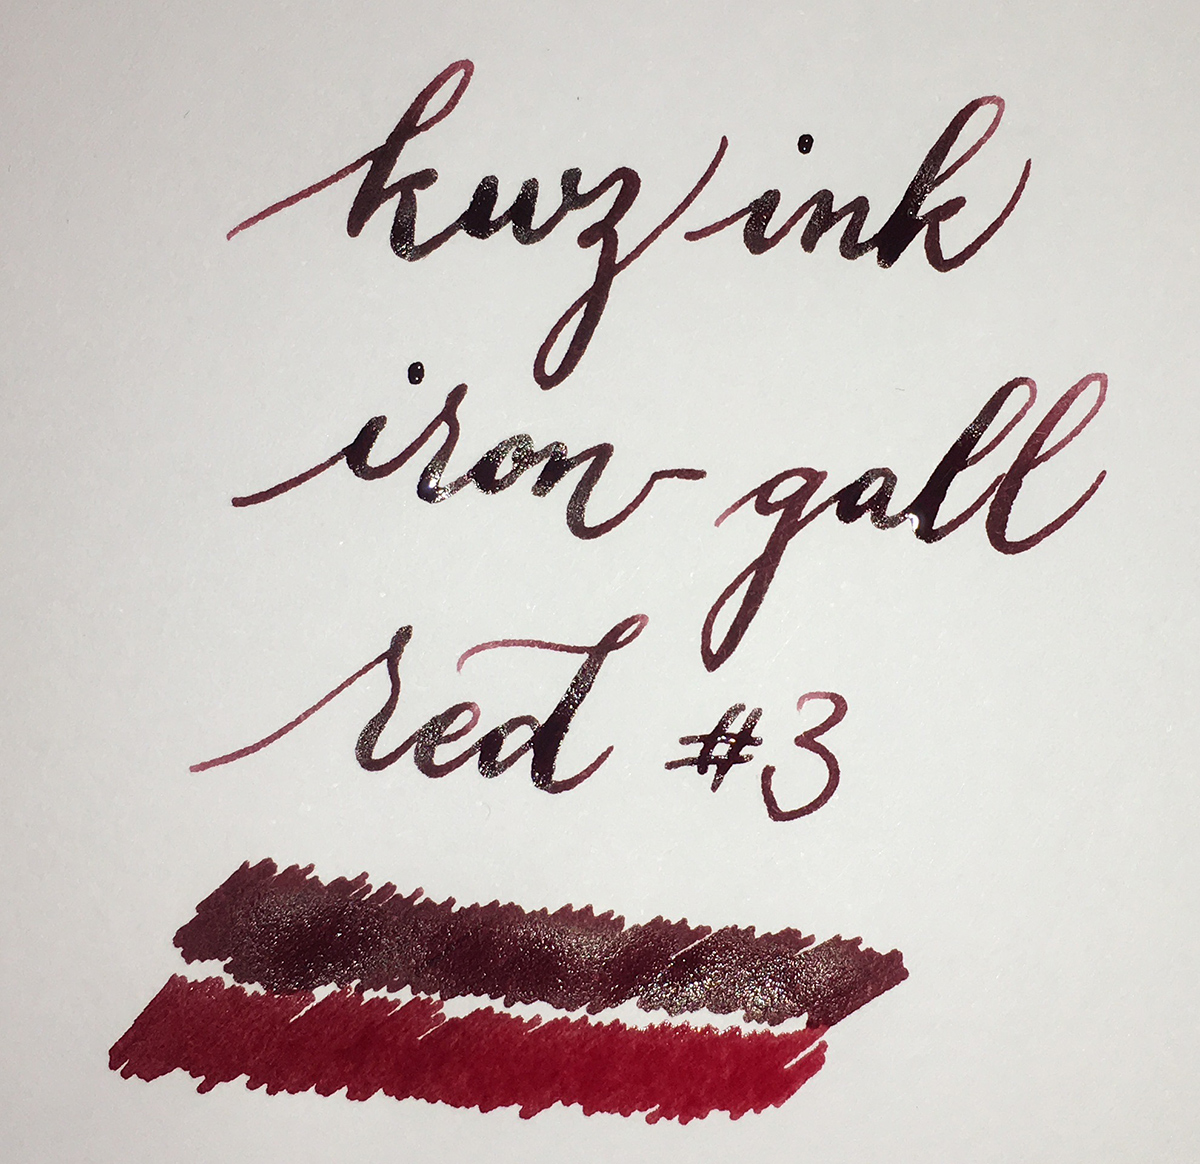 kwz ink
iron gall
red #3